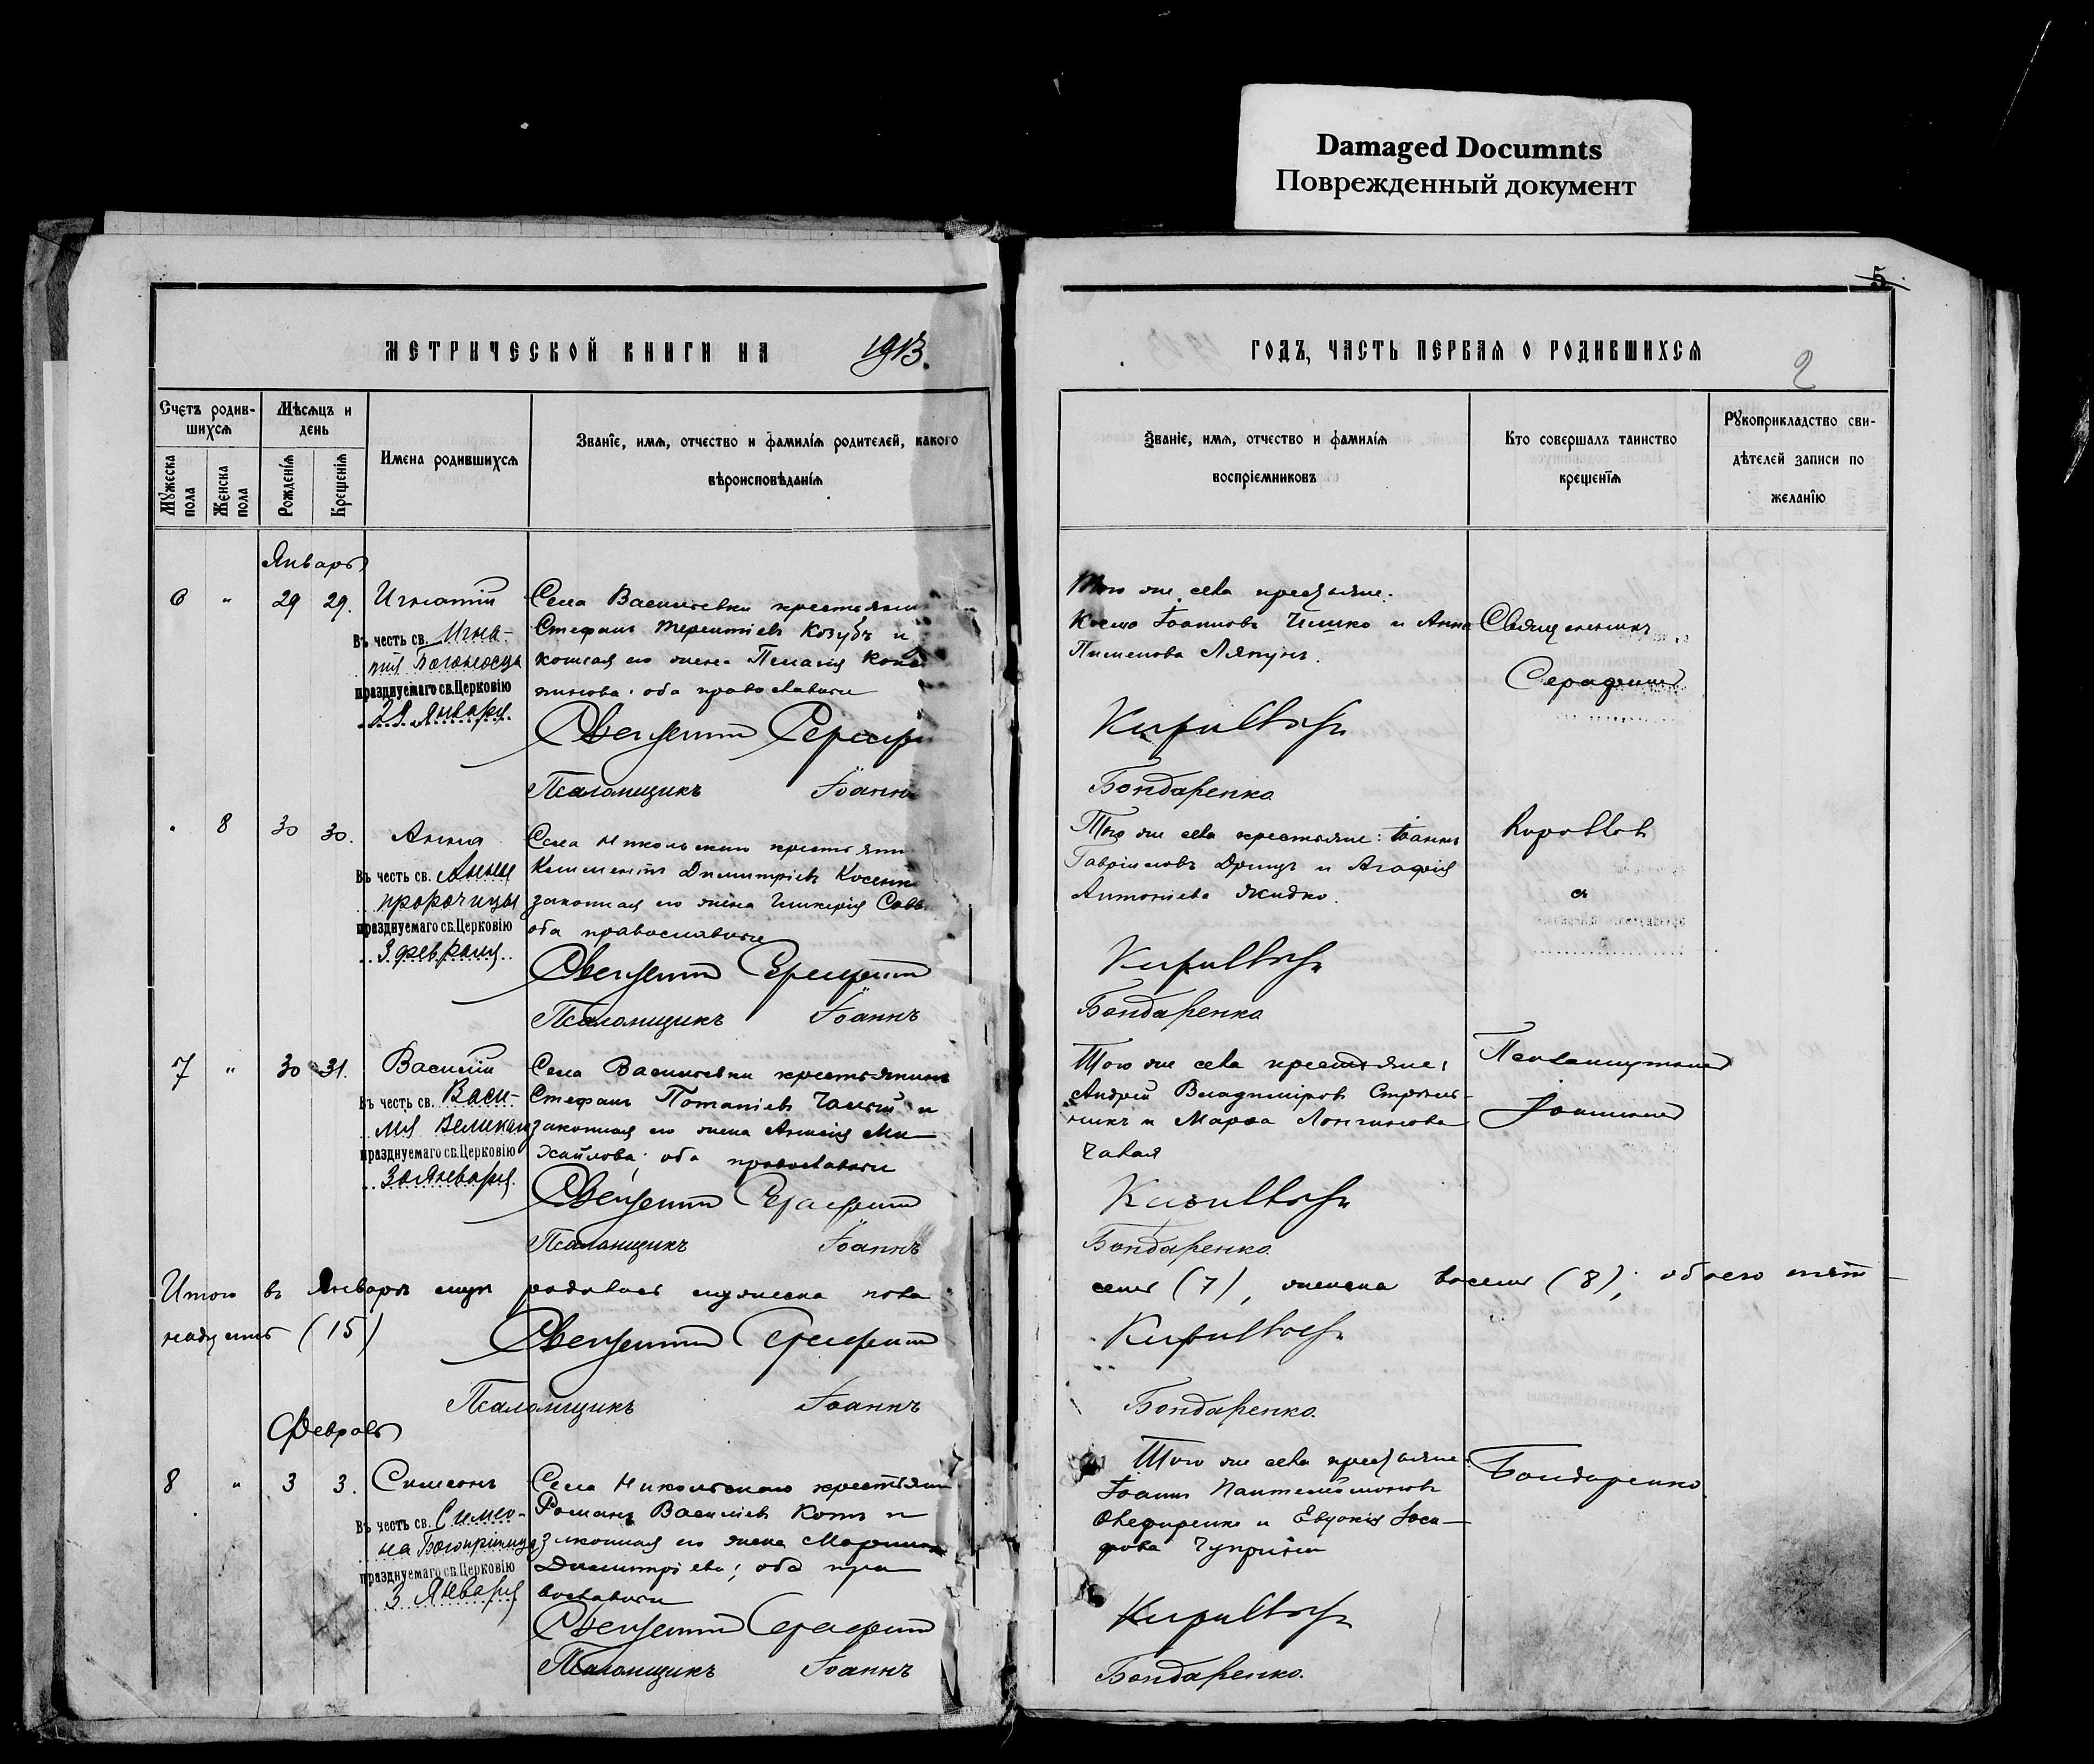 Damaged Documnts
Поврежденный документ
5
МЕТРИЧЕСКОЙ КНИГИ НА 1913.
ГОДЪ, ЧАСТЬ ПЕРВАЯ О РОДИВШИХСЯ
2
Счетъ родив-
шихся
Мѣсяцъ и
день
Мужеска
пола
Женска
пола
Рожденія
Крещенія
Имена родившихся
Званіе, имя, отчество и фамилія родителей, какого
вѣроисповѣданія
Званіе, имя, отчество и фамилія
воспріемниковъ
Кто совершалъ таинство
крещенія
Рукоприкладство сви-
дѣтелей записи по
желанію
Январь
6 " 29 29. Игнатій
Въ честь св. Игна-
тія Богоносца
празднуемаго св. Церковію
Января
Села Васильевки крестьянин
Стефанъ Терентіевъ Козубъ и
законная его жена Пелагія
оба православные
Священникъ Сераф
Псаломщикъ Іоаннъ
Того же села крестьяне:
Косма Іоанновъ Чишко и Анна
Пименова Ляпунъ.
Кирилловъ
Бондаренко
Священникъ
Серафимъ
" 8 30 30. Анна
Въ честь св. Анны
пророчицы
празднуемаго св. Церковію
3 февраля
Села Никольскаго крестьянин
Климентъ Димитріевъ
законная его жена Гликерія Савв
оба православные
Священникъ Серафимъ
Псаломщикъ Іоаннъ
Того же села крестьяне: Іоаннъ
Гавріиловъ и Агафія
Антоніева Жидко.
Кирилловъ
Бондаренко
Кирилловъ
съ
7 " 30 31. Василій
Въ честь св. Васи-
лія Великаго
празднуемаго св. Церковію
30 Января
Села Васильевки крестьянинъ
Стефанъ Потапіевъ Чалый и
законная его жена Анисія Ми-
хайлова; оба православные
Священникъ Серафимъ
Псаломщикъ Іоаннъ
Того же села крестьяне:
Андрей Владиміровъ Стрель-
никъ и Марѳа Лонгинова
Чалая
Кирилловъ
Бондаренко
Псаломщикомъ
Іоанномъ
Итого въ Январѣ родилось мужеска пола
семь (7), женска восемь (8); обоего пят-
надцать (15)
Священникъ Серафимъ
Кирилловъ
Псаломщикъ Іоаннъ
Бондаренко.
Февраль
8 " 3 3. Симеонъ
Въ честь св. Симео-
на Богопріимца
празднуемаго св. Церковію
3 Января
Села Никольскаго крестьянин
Романъ Василіевъ Котъ и
законная его жена Марина
Димитріева; оба пра-
вославные
Священникъ Серафимъ
Псаломщикъ Іоаннъ
Того же села крестьяне:
Іоаннъ Пантелеимоновъ
и Евдокія Іоси-
фова Чуприна
Кирилловъ
Бондаренко.
Бондаренко.